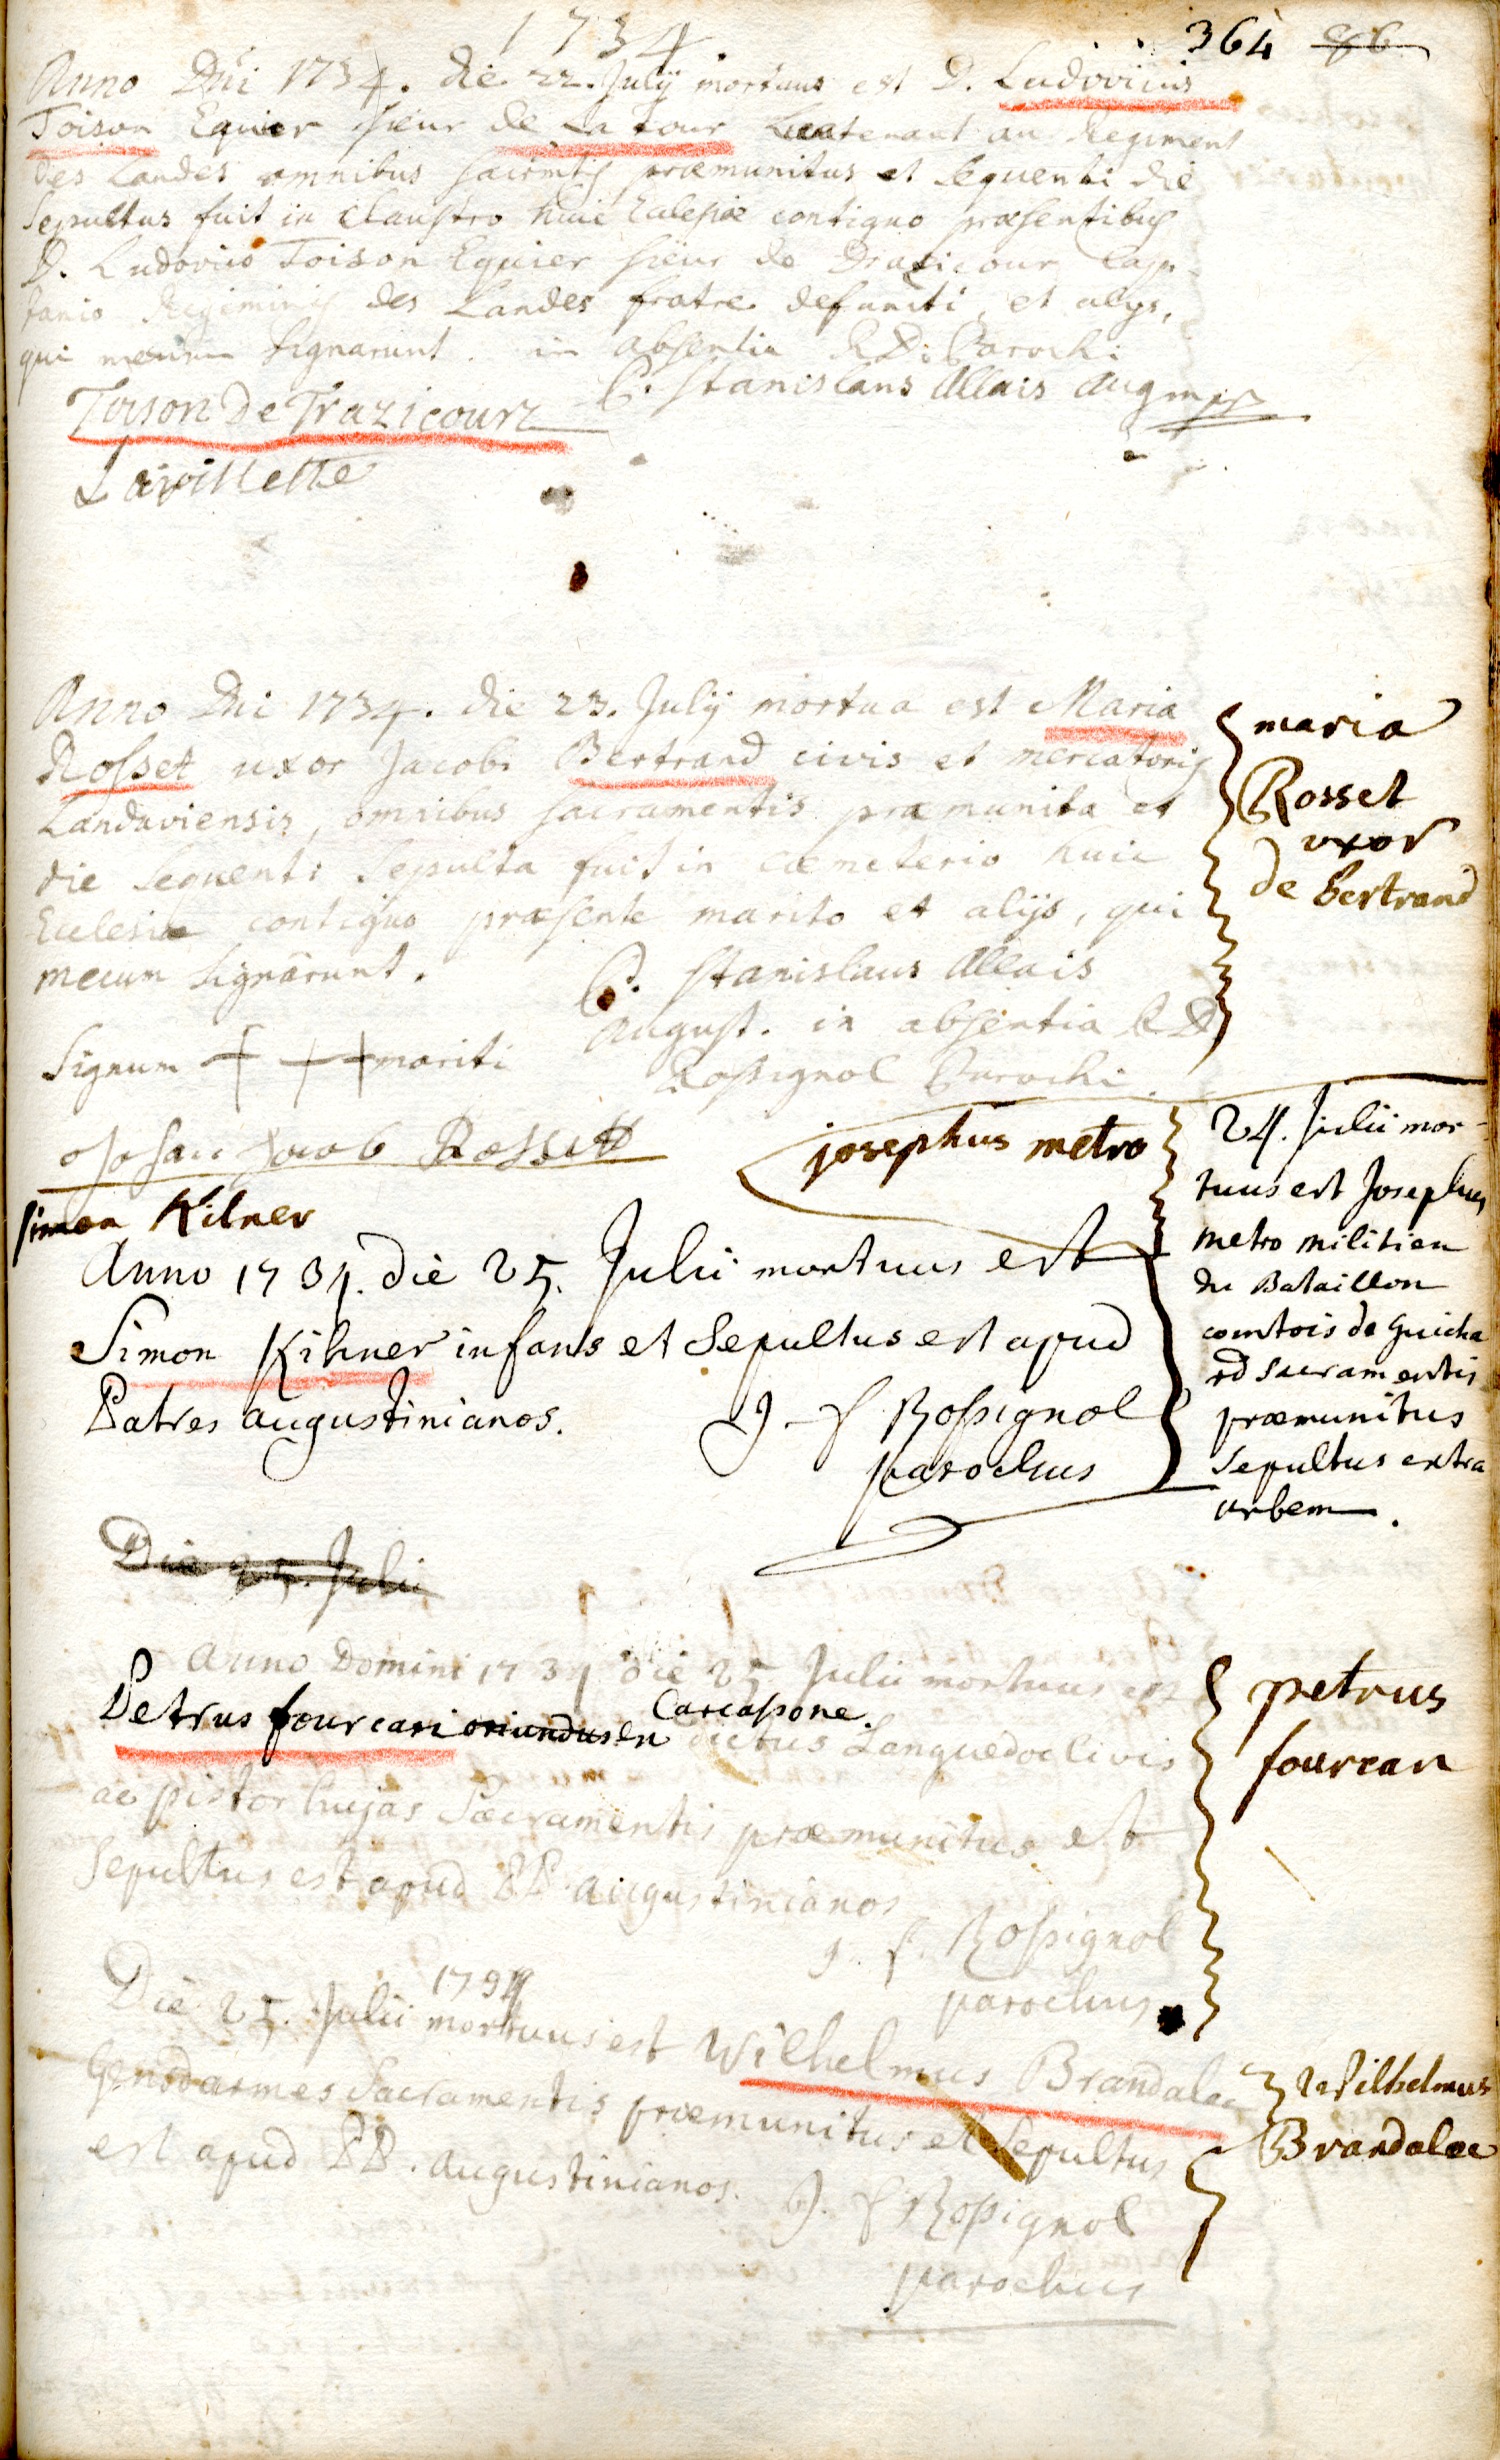 1734.
364
Anno Dni 1734. die 22. Julij mortuus est D. Ludovicus
Toison Equier sieur de La Tour Lieutenant au Regiment
des Landes omnibus sacrmtis præmunitus et sequenti die
sepultus fuit in Claustro huic Eclesiæ contiguo præsentibus
D. Ludovico Toison Equier sieur de Capi-
tanio Regiminis des Landes fratre defuncti, et alijs,
qui mecum signarunt. in absentia R D. Parochi
P. Stanislaus Allais Aug
Toison De Trazicourt
Lavillette
Anno Dni 1734. die 23. Julij mortua est Maria
Rosset uxor Jacobi Bertrand civis et mercatoris
Landaviensis, omnibus sacramentis præmunita et
die sequenti sepulta fuit in cœmeterio huic
Eclesiæ contiguo præsente marito et alijs, qui
mecum signârunt.
P. Stanislaus Allais
August. in absentia R D
Rossignol Parochi
Signum mariti
Jacob Rosset
maria
Rosset
uxor
de bertrand
josephus metro
24. Julii mor-
tuus est Josephus
metro militien
du Bataillon
comtois de Guicha
rd sacramentis
præmunitus
sepultus extra
urbem.
simon Kilner
Anno 1734. die 25. Julii mortuus est
Simon Kihner infans et sepultus est apud
Patres augustinianos.
J. f. Rossignol
parochus
Die 25. Julii
Anno Domini 1734 die 25 Julii mortuus est
Petrus fourcari oriundus en Carcassone.
dictus Languedoc civis
ac pistor hujas Sacramentis præmunitus est
Sepultus est apud PP. augustinianos
J. f. Rossignol
parochus
petrus
fourcan
Die 25. Julii 1734 mortuus est Wilhelmus Brandalac
Gensdarmes Sacramentis præmunitus et Sepultus
est apud PP. augustinianos.
J. f. Rossignol
parochus
Wilhelmus
Brandalac